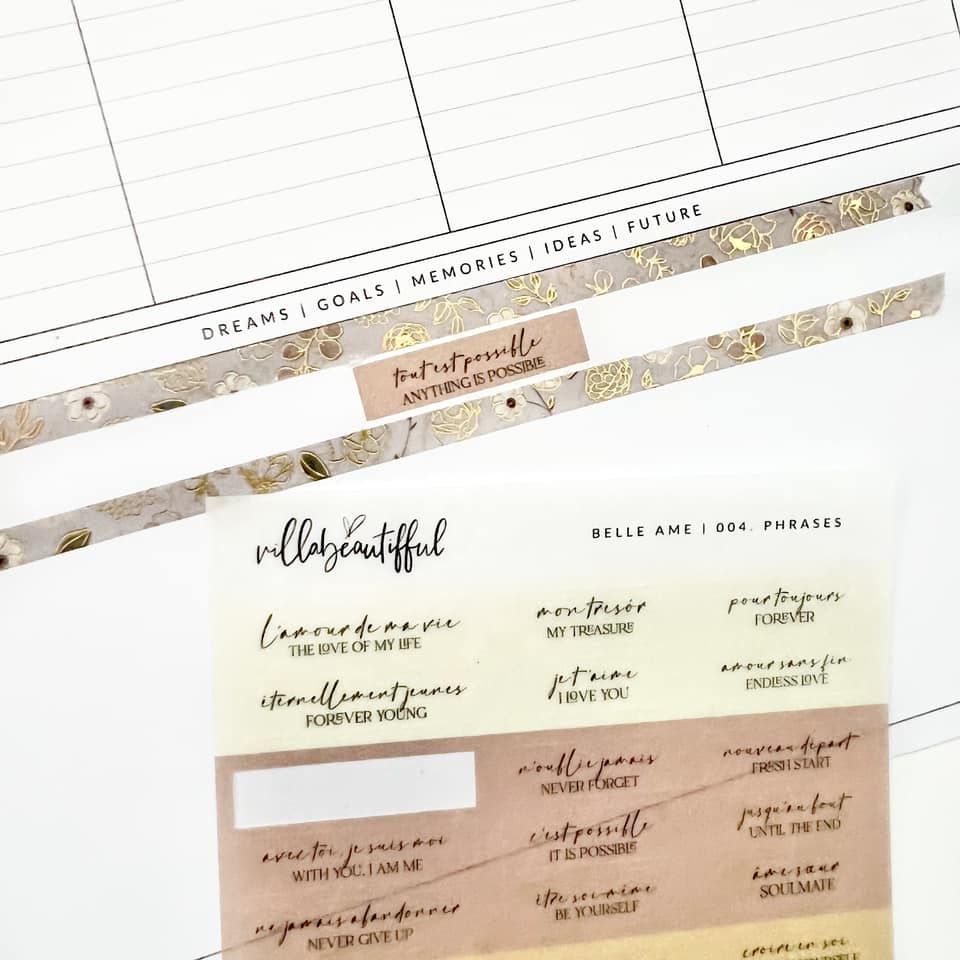 DREAMS | GOALS | MEMORIES | IDEAS | FUTURE
tout est possible
ANYTHING IS POSSIBLE
villabeautifful
BELLE AME | 004. PHRASES
L'amour de ma vie
THE LOVE OF MY LIFE
mon tresór
MY TREASURE
pour toujours
FOREVER
éternellement jeunes
FOREVER YOUNG
je t'aime
I LOVE YOU
amour sans fin
ENDLESS LOVE
n'oublie jamais
NEVER FORGET
nouveau départ
FRESH START
avec toi, je suis moi
WITH YOU, I AM ME
c'est possible
IT IS POSSIBLE
jusqu'au bout
UNTIL THE END
ne jamais abandonner
NEVER GIVE UP
être soi-même
BE YOURSELF
âme sœur
SOULMATE
croire en soi